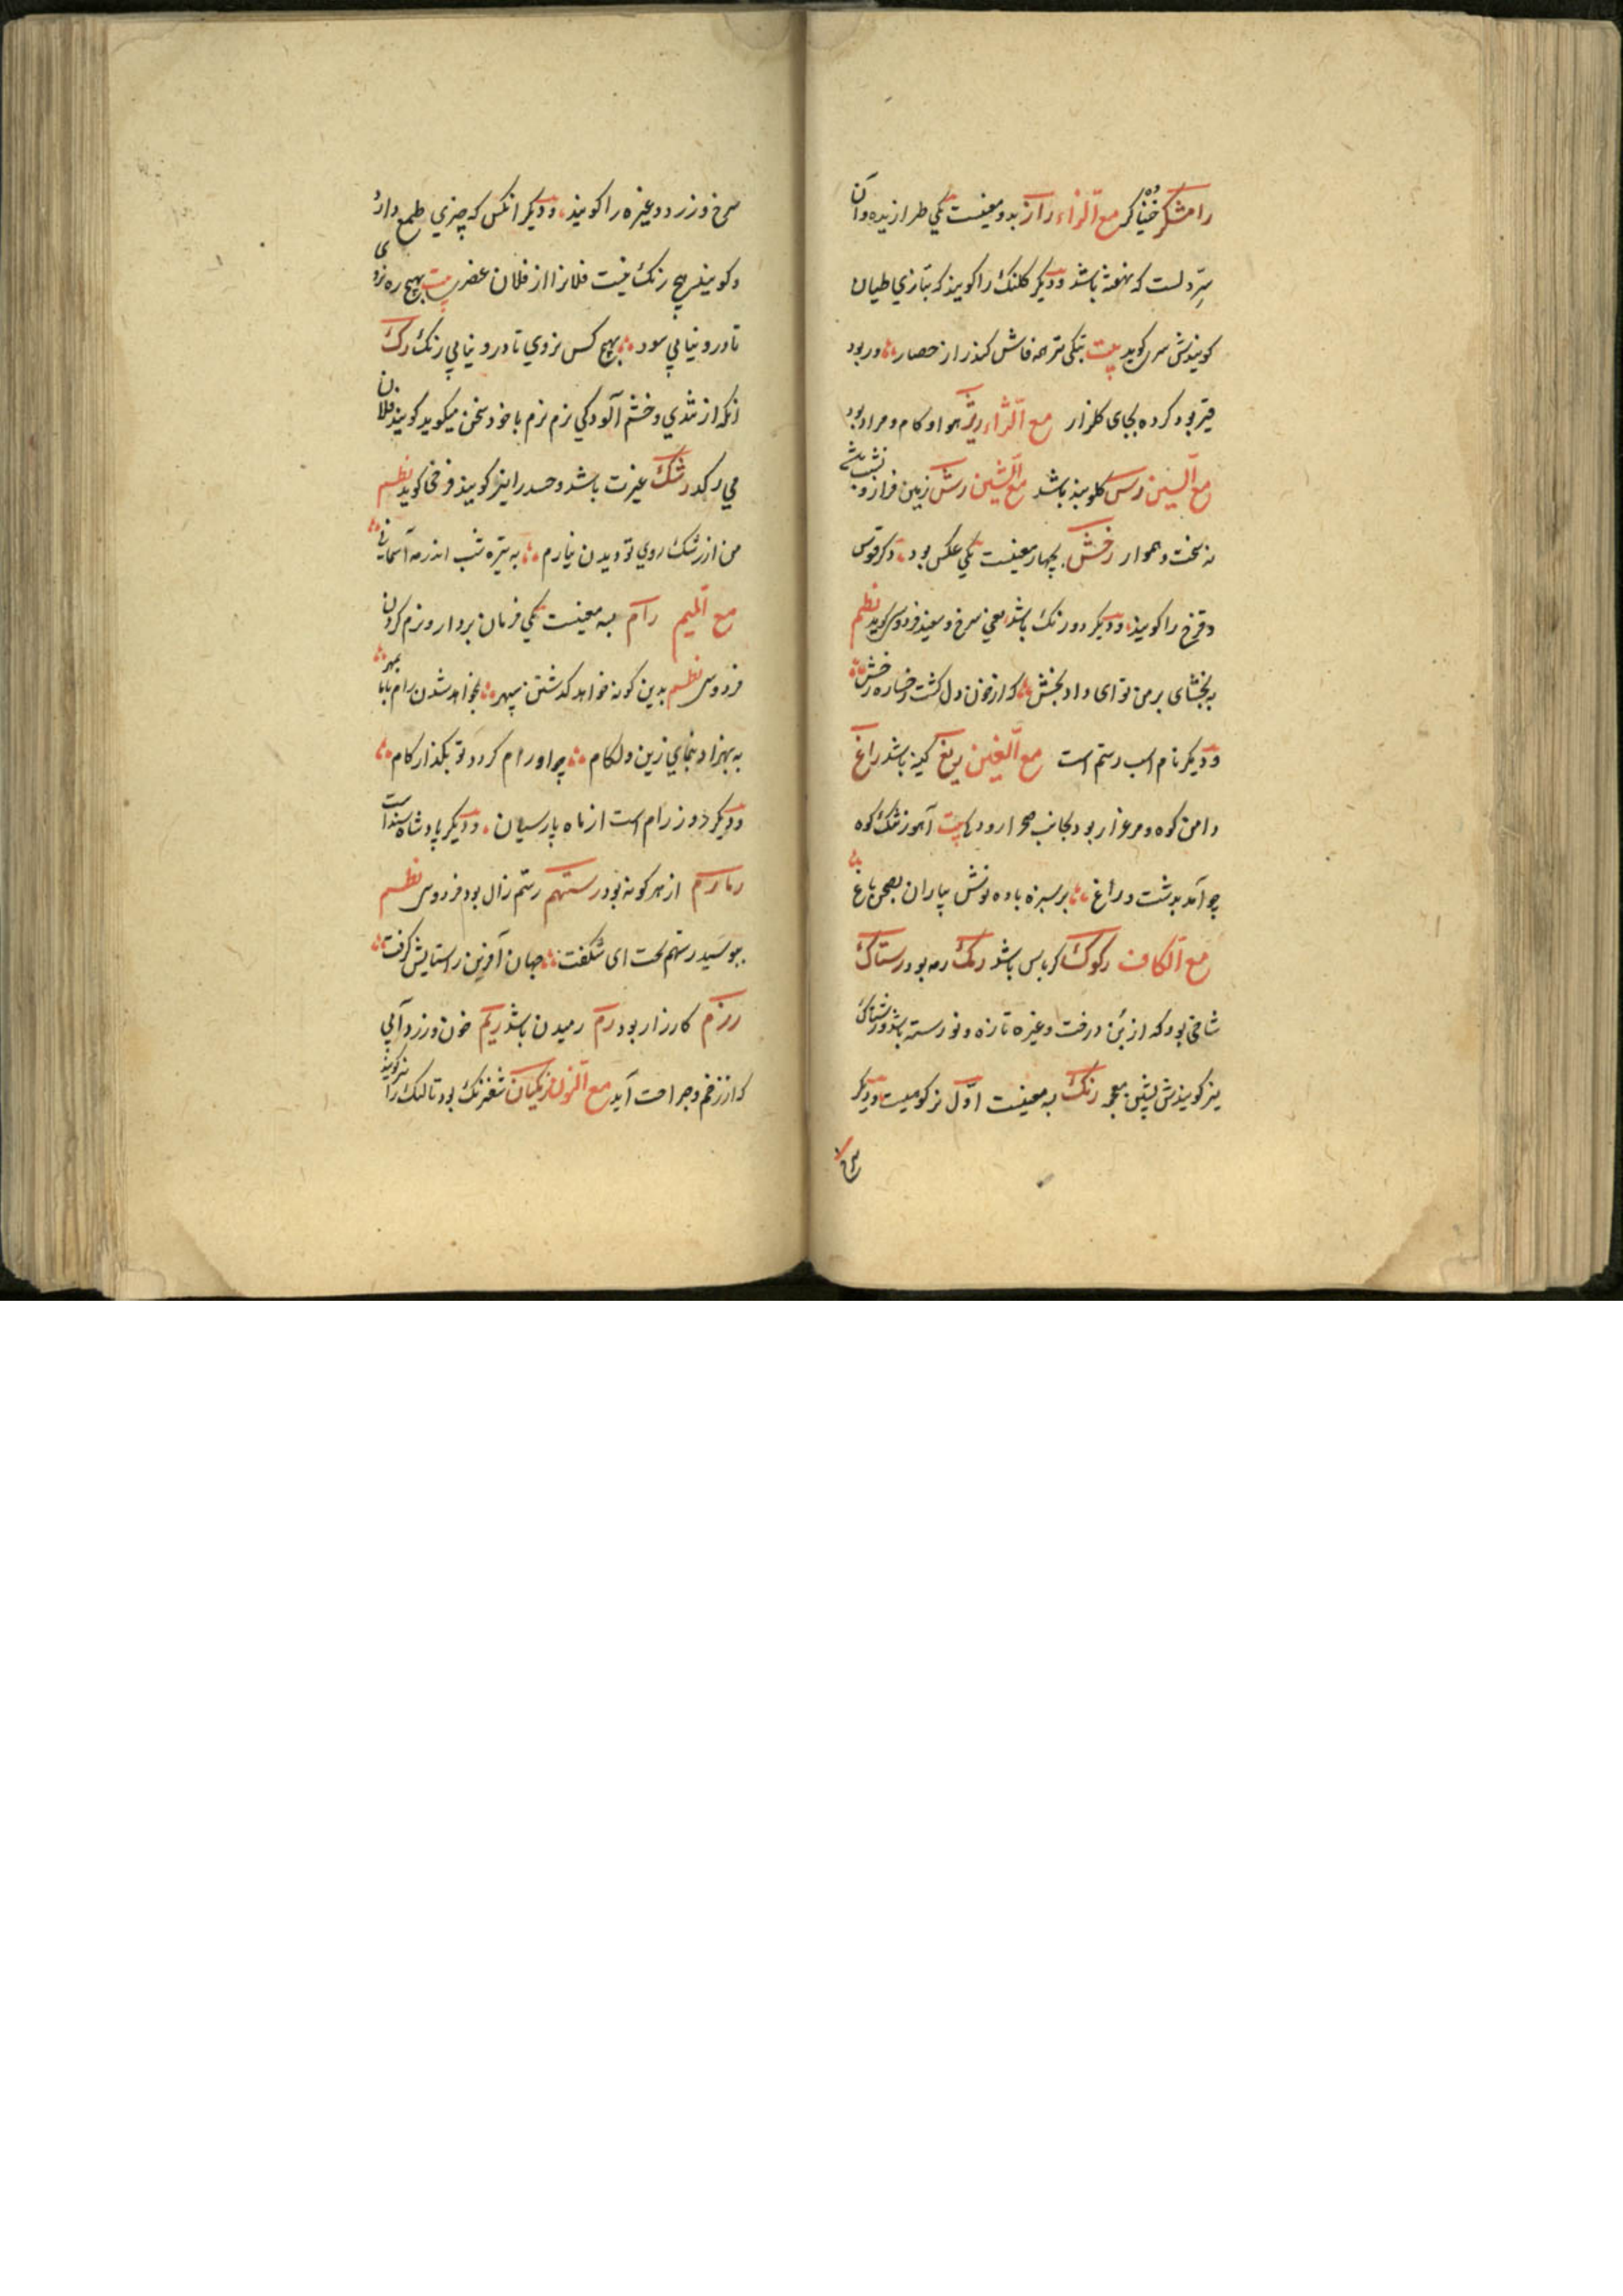 رامشکر خنیاکر مع الزاء راز بدو معنیست یکی طرازیده و آن
سرّ دلست که نهفته باشد و دیکر کلنک را کویند که بتازی طیان
کویندش کوید بیت بتکی فاش کند راز حصار ∴ و ربود
قیر بود کرده بجای کلزار مع الزاء ریژ هوا و کام و مراد بود
مع السین رس کلوبند باشد مع الشین رش زمین فراز و نشیب باشد
نه سخت و هموار رخش بچهار معنیست یکی عکس بود، دکر قوس
و قزح را کویند، و دیکر دو رنک باشد یعنی سرخ و سفید فردوسی کوید نظم
ببخشای بر من تو ای داد بخش ∴ که از خون دل کشت رخساره رخش ∴
و دیکر نام اسب رستم است مع الغین ریغ کینه باشد راغ
دامن کوه و مرغزار بود بجانب صحرا رودها بیت آهو ز تنک کوه
چو آمد بدشت و راغ ∴ بر سبزه باده نوش بیاران بصحن باغ ∴
مع الکاف رکوک کرباس باشد رمک رمه بود رستاک
شاخی بود که از بن درخت و غیره تازه و نو رسته باشد و رشتاک
نیز کویندش بشین معجمه رنک به معنیست اوّل نزکوهیست و دیکر
سرخ
سرخ و زرد و غیره را کویند، و دیکر انکس که چیزی طمع دارد
و کویند هیچ رنک نیست فلانرا از فلان عنصری بیت بهیچ ره نروی
تا درو نیابی سود ∴ بهیچ کس نروی تا درو نیابی رنک رک
انکه از تندی و خشم آلودکی نرم نرم با خود سخن میکوید کویند فلان
می رکد رشک غیرت باشد و حسد را نیز کویند فرخی کوید نظم
من از رشک روی تو دیدن نیارم ∴ به تیره شب اندر مه آسمانی ∴
مع المیم رام به معنیست یکی فرمان بردار و نرم کردن
فردوسی نظم بدین کونه خواهد کذشتن سپهر ∴ نخواهد شدن رام با ما بمهر ∴
به بهزاد بنمای زین و لکام ∴ چو او رام کردد تو بکذار کام ∴
و دیکر روز رام است از ماه پارسیان، و دیکر پادشاه سند است
رمارم از هر کونه بود رستهم رستم زال بود فردوسی نظم
ببوسید رستهم تخت ای شکفت ∴ جهان آفرین را ستایش کرفت ∴
رزم کارزار بود رم رمیدن باشد ریم خون و زردآبی
که از زخم و جراحت آید مع النون شغرنک بود تالنک را نیز کویند